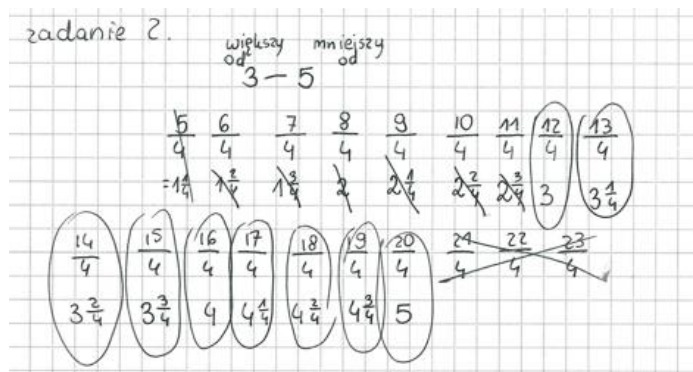 zadanie 2.
większy mniejszy
od od
3 — 5
5/4 6/4 7/4 8/4 9/4 10/4 11/4 12/4 13/4
=1 1/4 1 2/4 1 3/4 2 2 1/4 2 2/4 2 3/4 3 3 1/4
14/4 15/4 16/4 17/4 18/4 19/4 20/4 21/4 22/4 23/4
3 2/4 3 3/4 4 4 1/4 4 2/4 4 3/4 5